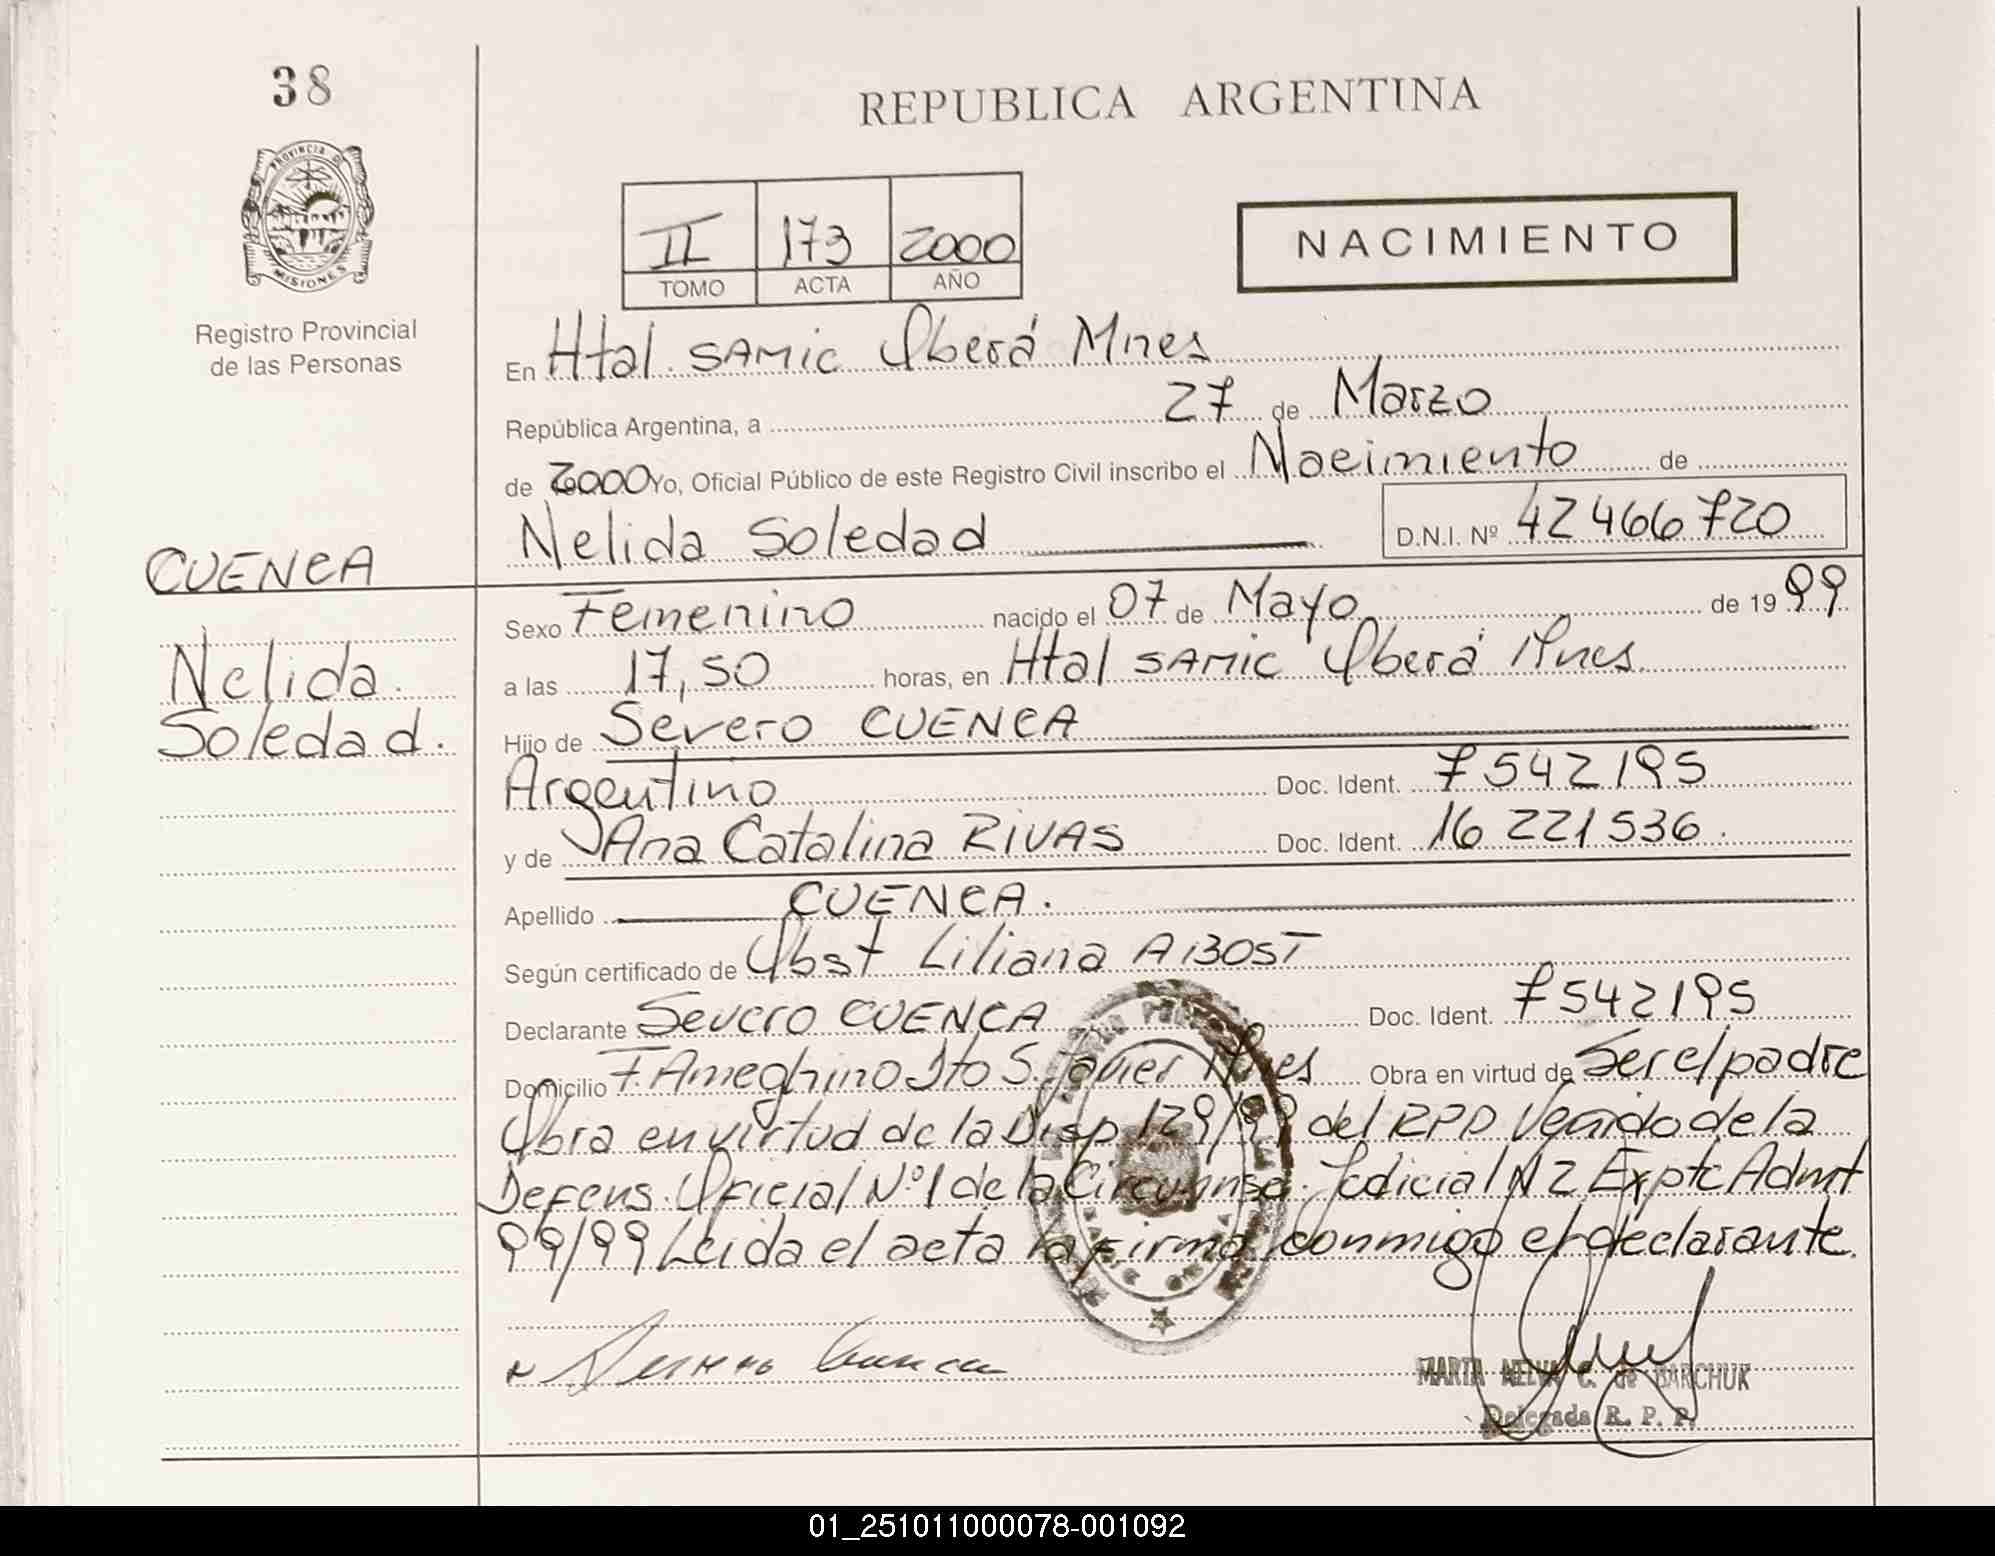 38
REPUBLICA ARGENTINA
PROVINCIA DE
MISIONES
II 173 2000
TOMO ACTA AÑO
NACIMIENTO
Registro Provincial
de las Personas
En Htal. SAMIC Oberá Mnes
República Argentina, a 27 de Marzo
de 2000 Yo, Oficial Público de este Registro Civil inscribo el Nacimiento de
Nelida Soledad D.N.I. Nº 42466720
CUENCA
Nelida
Soledad.
Sexo Femenino nacido el 07 de Mayo de 1999
a las 17,50 horas, en Htal SAMIC Oberá Mnes
Hijo de Severo CUENCA
Argentino Doc. Ident. 7542195
y de Ana Catalina RIVAS Doc. Ident. 16221536.
Apellido CUENCA.
Según certificado de Obst Liliana ABOST
Declarante Severo CUENCA Doc. Ident. 7542195
Domicilio F. Ameghino Dto S. Javier Mnes Obra en virtud de Ser el padre
Obra en virtud de la Disp 129/99 del RPP Venido de la
Defens. Oficial Nº1 de la Circunsc. Judicial N 2 Expte Admt
99/99 Leida el acta la firma conmigo el declarante.
Severo Cuenca
MARTA NELVA C. de BARCHUK
Delegada R. P. P.
01_251011000078-001092